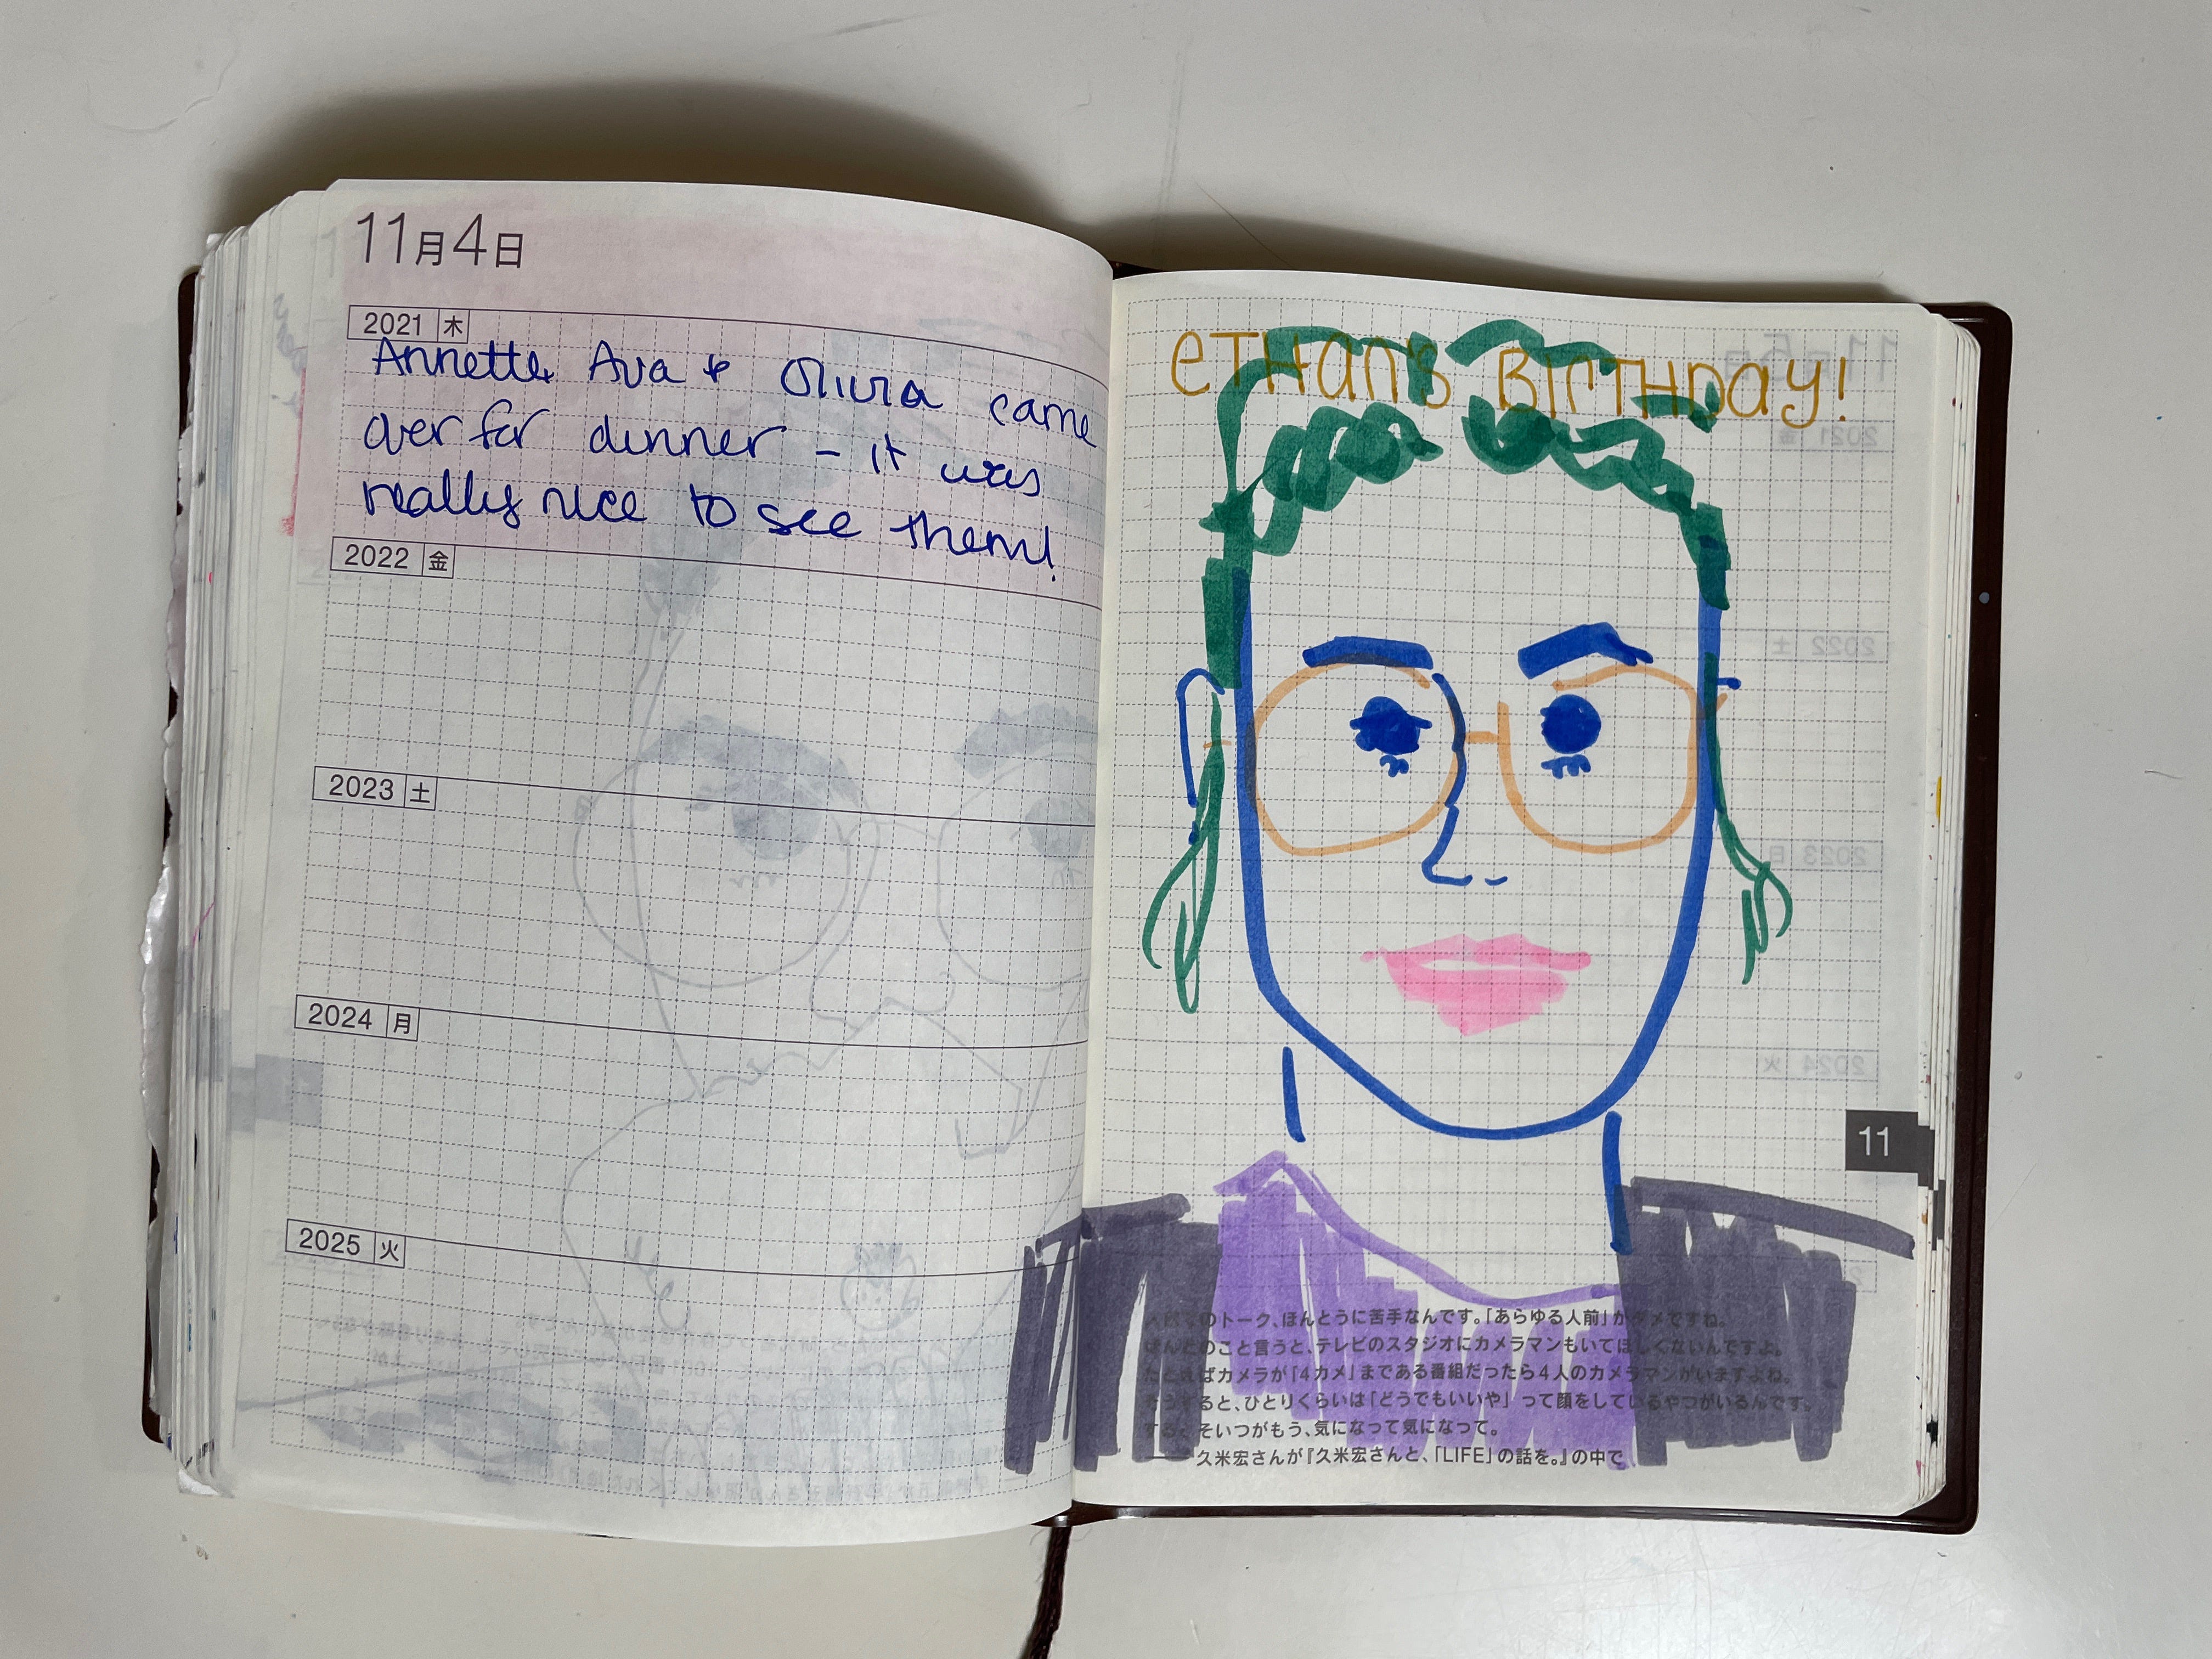 11月4日
2021 木
Annette Ava & Olivia came
over for dinner – it was
really nice to see them!
2022 金
2023 土
2024 月
2025 火
eTHan's BirTHDay!
11
のトーク、ほんとうに苦手なんです。「あらゆる人前」がダメですね。
ほんとのこと言うと、テレビのスタジオにカメラマンもいてほしくないんですよ。
たとえばカメラが「4カメ」まである番組だったら4人のカメラマンがいますよね。
そうすると、ひとりくらいは「どうでもいいや」って顔をしているやつがいるんです。
すると、そいつがもう、気になって気になって。
——久米宏さんが『久米宏さんと、「LIFE」の話を。』の中で